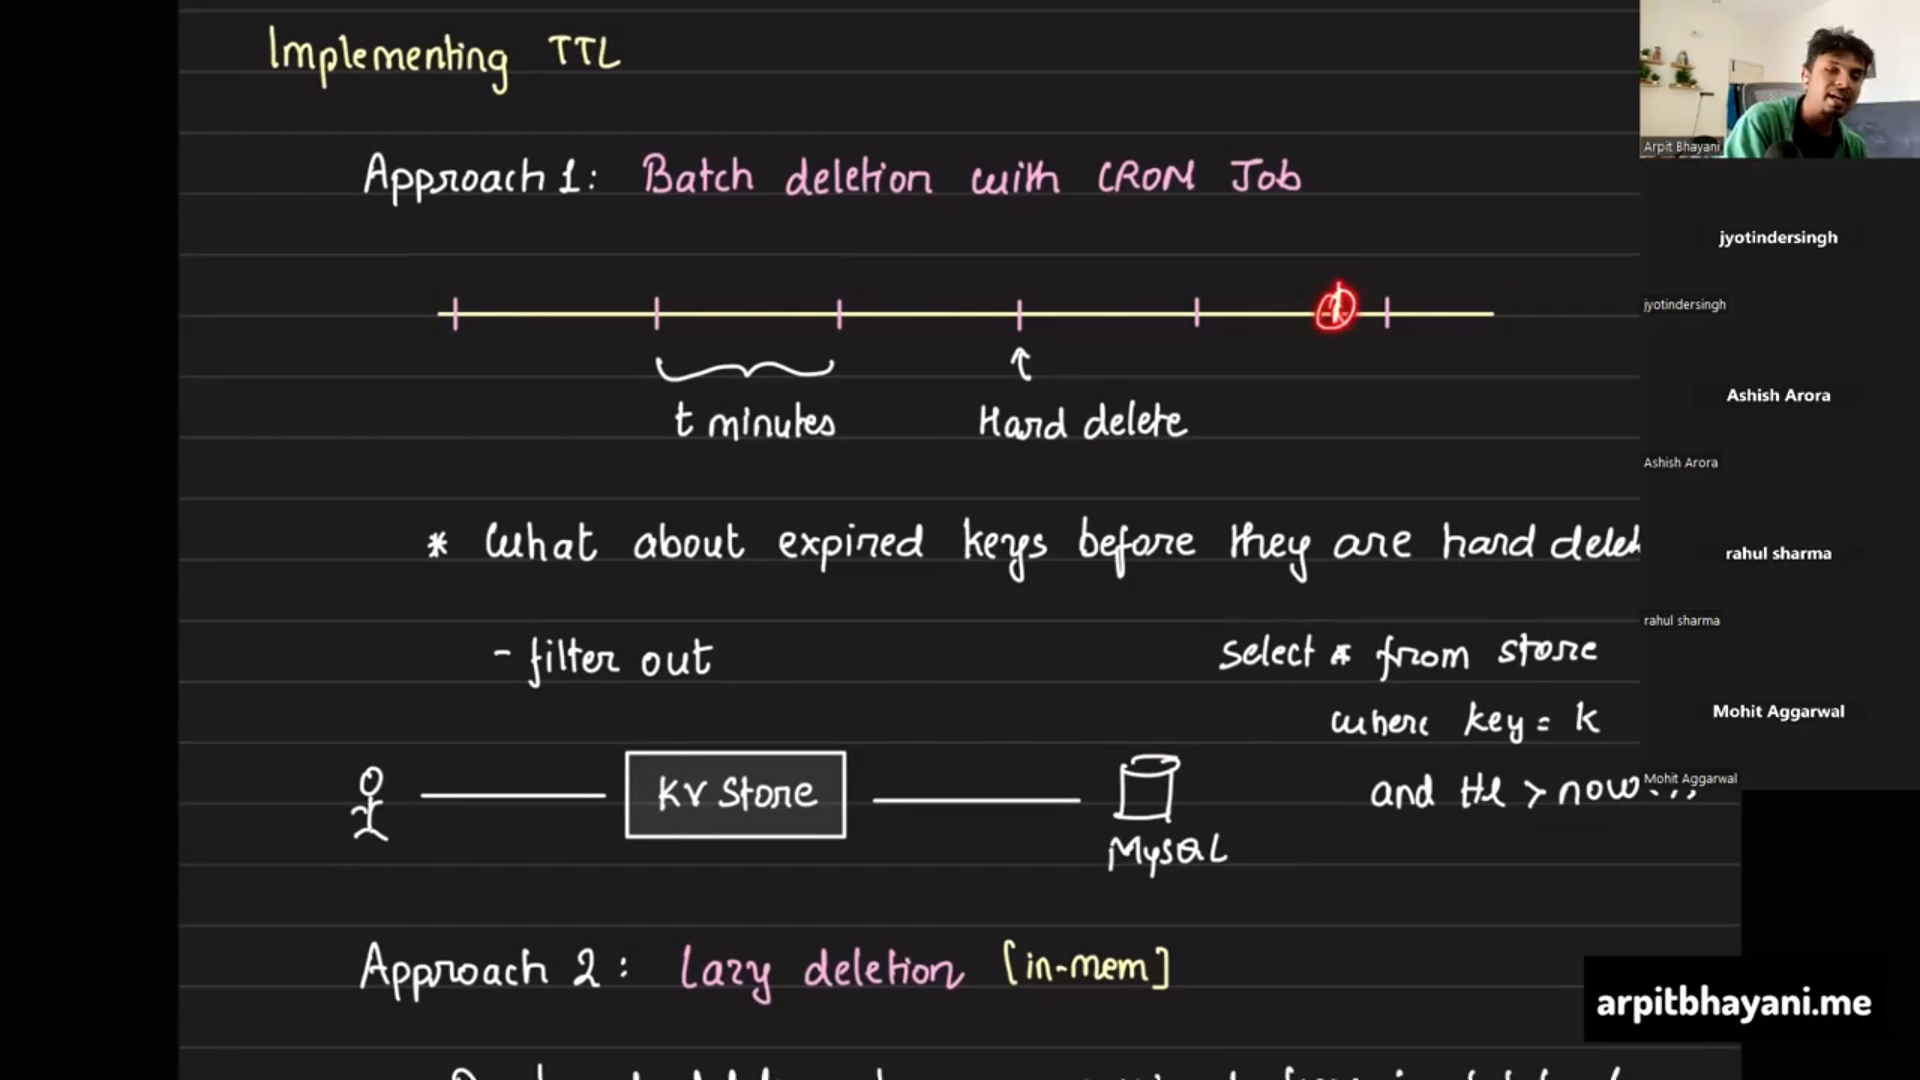 Implementing TTL
Approach 1: Batch deletion with CRON Job
t minutes
Hard delete
* What about expired keys before they are hard delet
- filter out
select * from store
where key = k
and ttl > now...
KV Store
MySQL
Approach 2: Lazy deletion [in-mem]
Arpit Bhayani
jyotindersingh
jyotindersingh
Ashish Arora
Ashish Arora
rahul sharma
rahul sharma
Mohit Aggarwal
Mohit Aggarwal
arpitbhayani.me